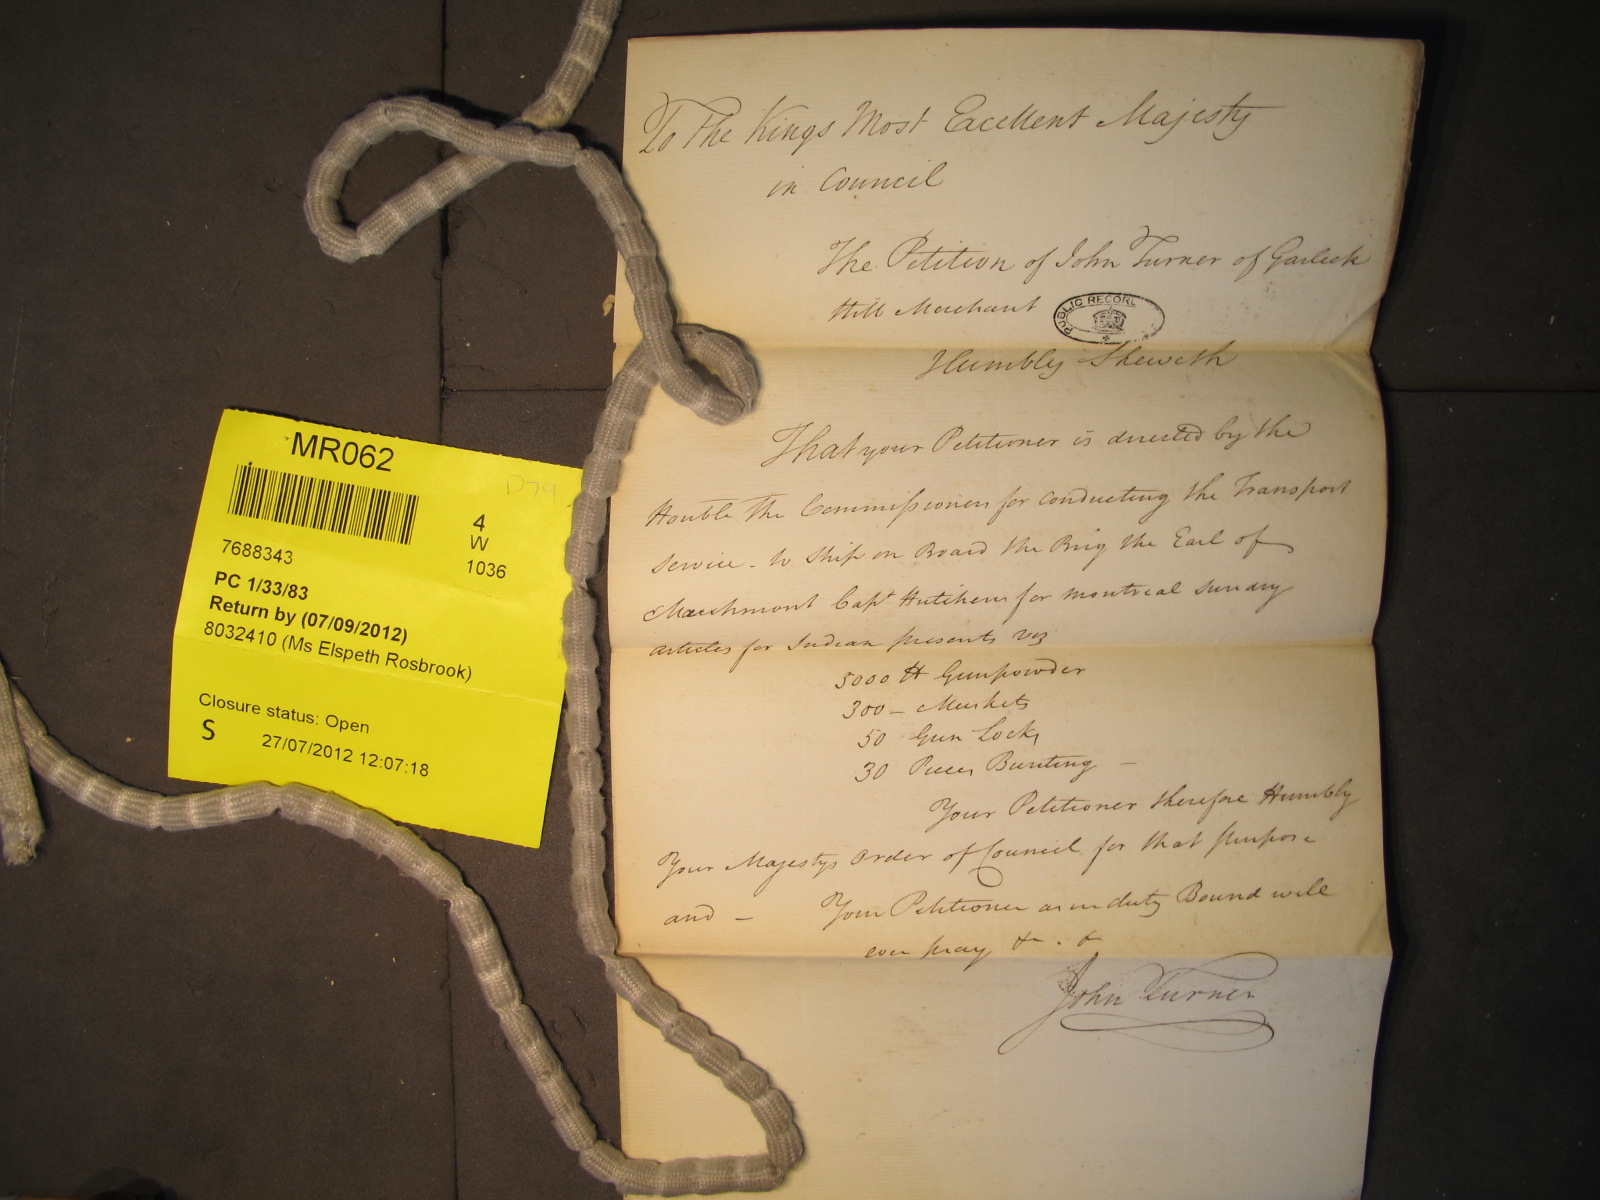 To The Kings Most Excellent Majesty
in Council
The Petition of John Turner of Garlick
Hill Merchant
PUBLIC RECORD
Humbly Sheweth
That your Petitioner is directed by the
Honble the Commissioners for conducting the Transport
Service - to ship on Board the Brig the Earl of
Marchmont Capt Hutchens for montreal sundry
articles for Indian presents viz
5000 lb Gunpowder
300 - Muskets
50 Gun Locks
30 Pieces Bunting -
Your Petitioner therefore Humbly
Your Majestys Order of Council for that purpose
and - Your Petitioner as in duty Bound will
ever pray &. &
John Turner
MR062
D74
4
W
1036
7688343
PC 1/33/83
Return by (07/09/2012)
8032410 (Ms Elspeth Rosbrook)
Closure status: Open
S 27/07/2012 12:07:18